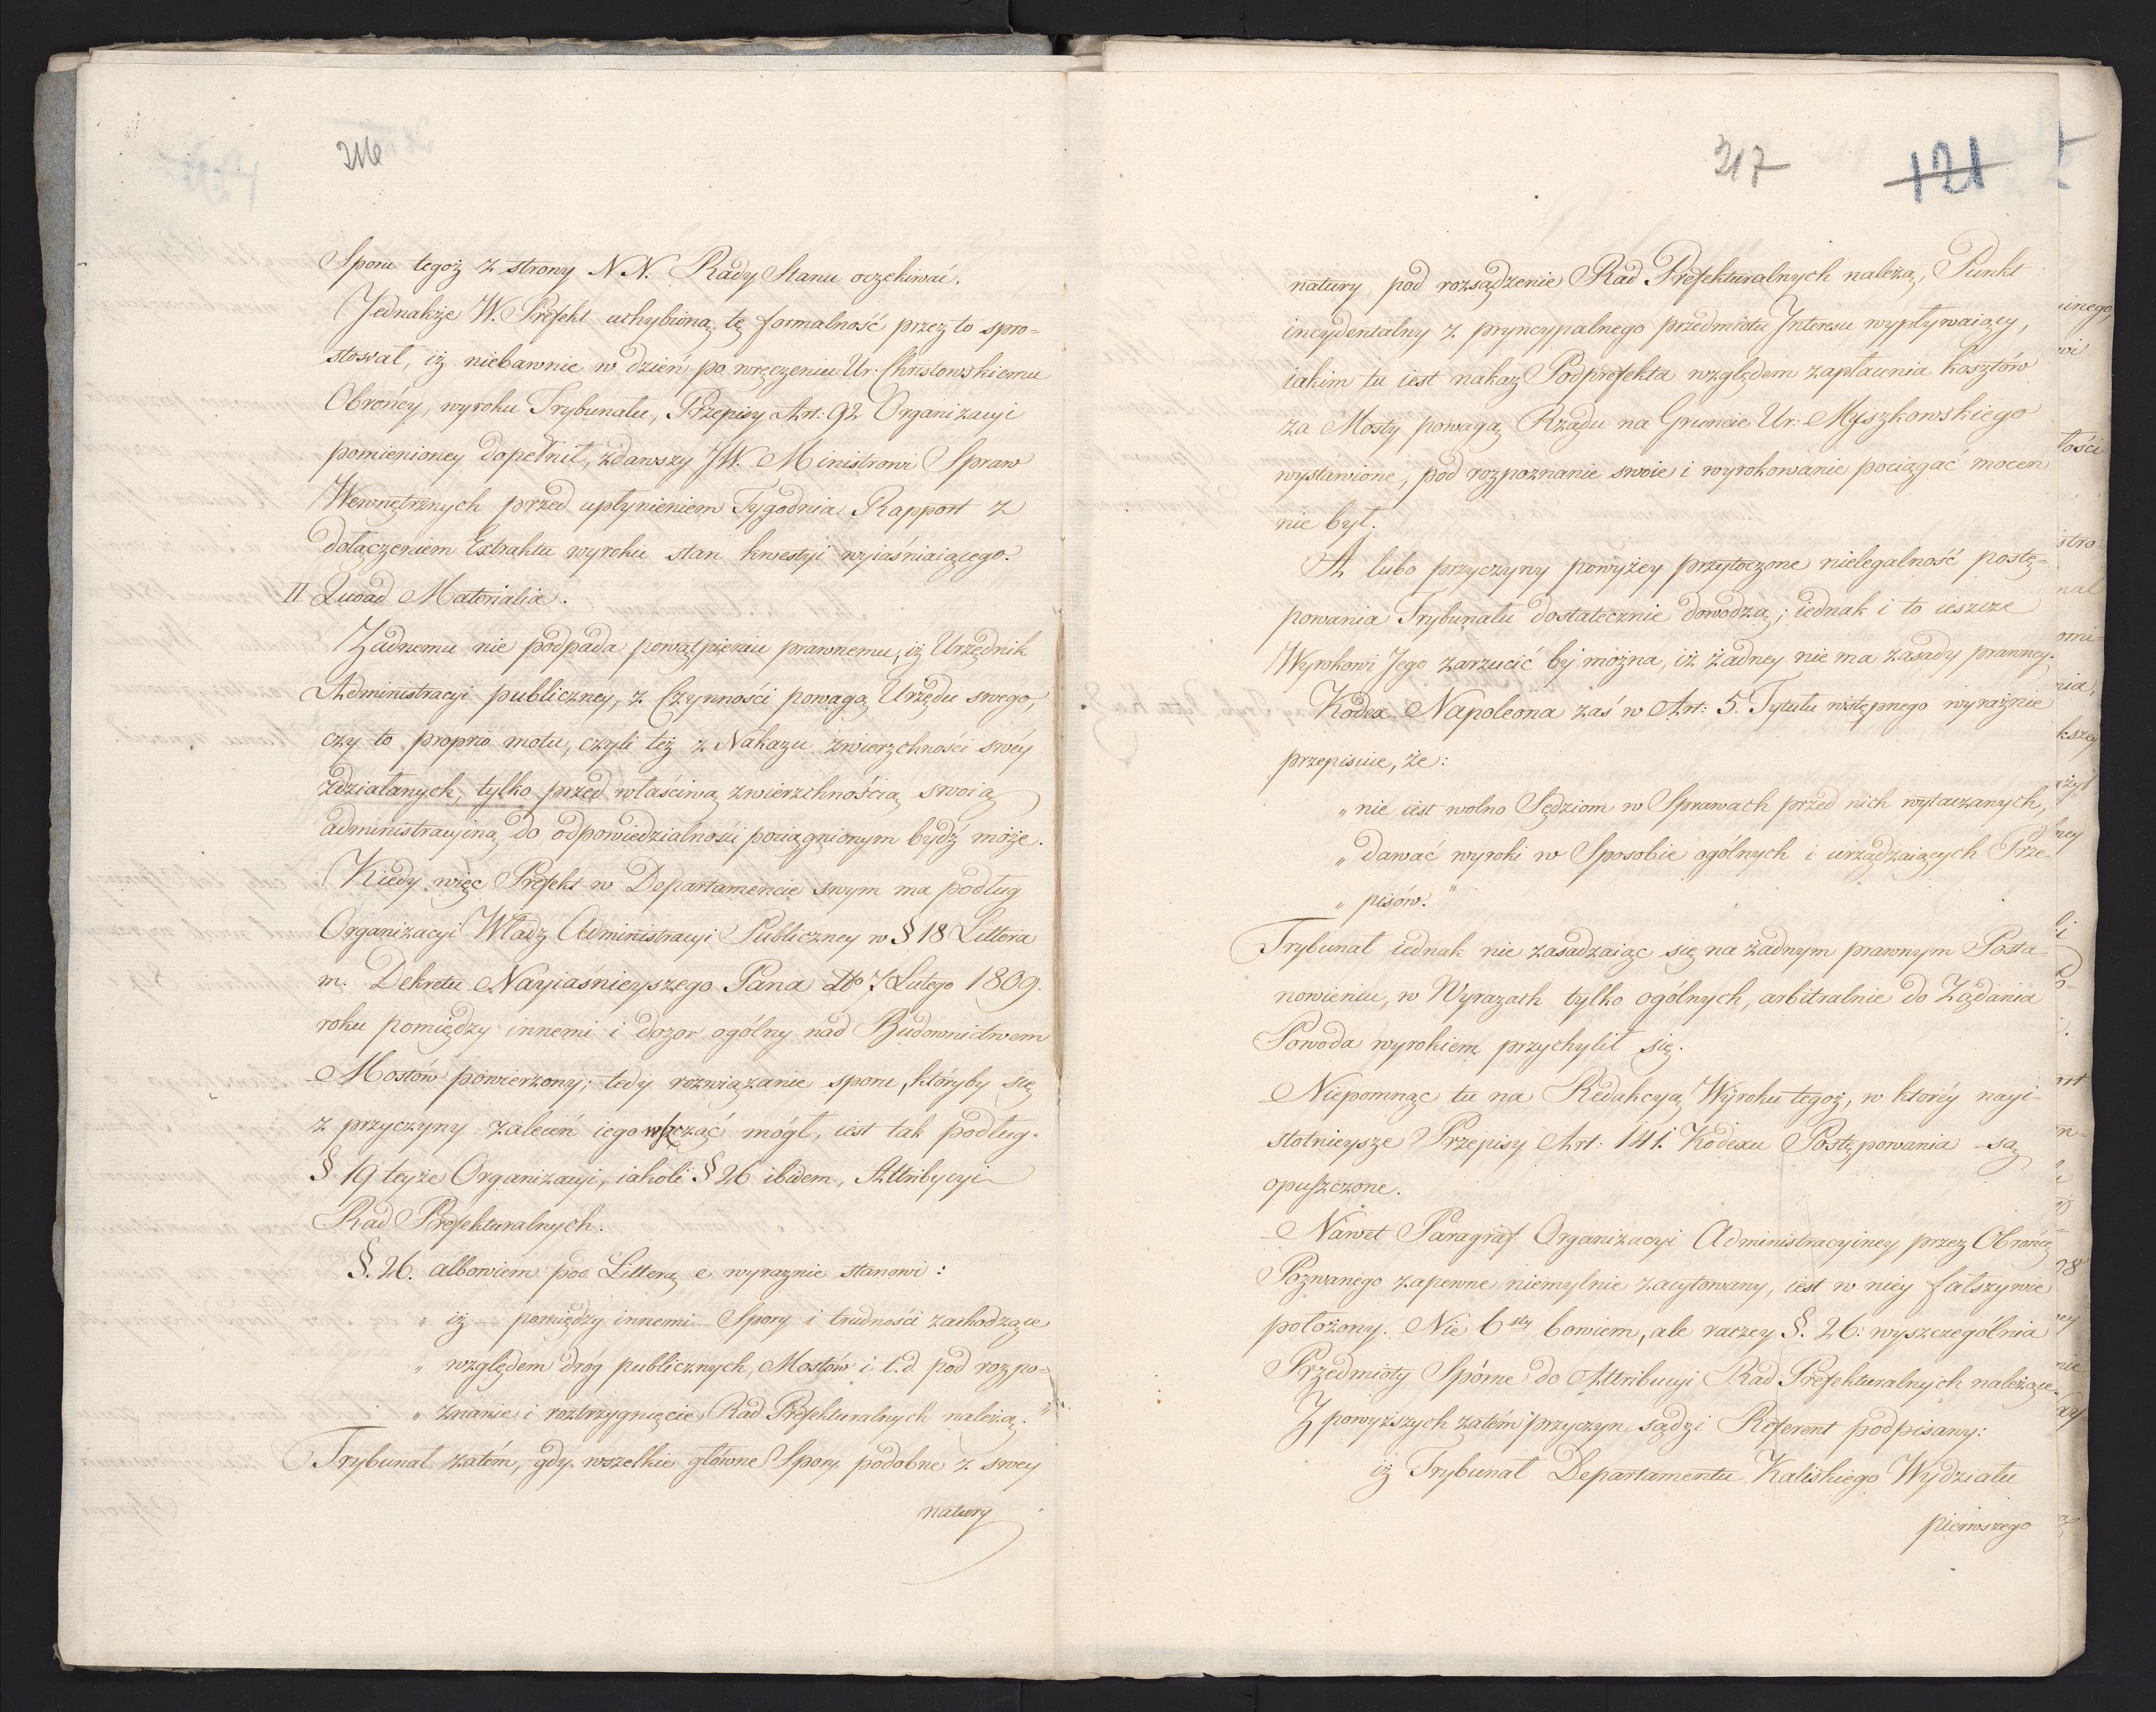 216
Sporu tegoż z strony N.N. Rady Stanu oczekiwać.
Jednakże W. Prefekt uchybioną tę formalność przez to spro=
stował, iż niebawnie w dzień po wręczeniu Ur: Christowskiemu
Obrońcy, wyroku Trybunału, Przepisy Art: 92 Organizacyi
pomienioney dopełnił, zdawszy JW. Ministrowi Spraw
Wewnętrznych przed upłynieniem Tygodnia Rapport z
dołączeniem Extraktu wyroku stan kwestyi wyiaśniaiącego.
II Quoad Materialia.
Żadnemu nie podpada powątpieniu prawnemu, iż Urzędnik
Administracyi publiczney, z Czynności powagą Urzędu swego,
czy to proprio motu, czyli też z Nakazu zwierzchności swéy
zdziałanych, tylko przed właściwą zwierzchnością swoią
administracyiną do odpowiedzialności pociągnionym bydź może.
Kiedy więc Prefekt w Departamencie swym ma podług
Organizacyi Władz Administracyi Publiczney w § 18 Littera
m. Dekretu Nayiaśnieyszego Pana dto 7 Lutego 1809.
roku pomiędzy innemi i dozor ogólny nad Budownictwem
Mostów powierzony; tedy rozwiązanie sporu, któryby się
z przyczyny zaleceń iego wszcząć mógł, iest tak podług
§ 19 teyże Organizacyi, iakoli § 26 ibidem, Attribycyi
Rad Prefekturalnych.
§. 26. albowiem pod Litterą e wyraznie stanowi:
„ iż — pomiędzy innemi — Spory i trudności zachodzące
„ względem dróg publicznych, Mostów i t.d. pod rozpo=
„ znanie i roztrzygnięcie Rad Prefekturalnych należą. "
Trybunał zatém, gdy wszelkie główne Spory podobne z swey
natury
217 121
natury pod rozsądzenie Rad Prefekturalnych należą, Punkt
incydentalny z pryncypalnego przedmiotu Jnteresu wypływaiący,
iakim tu iest nakaz Podprefekta względem zapłacenia kosztów
za Mosty powagą Rządu na Gruncie Ur: Myszkowskiego
wystawione, pod rozpoznanie swoie i wyrokowanie pociągać mocen
nie był.
A lubo przyczyny powyżey przytoczone nielegalność postę=
powania Trybunału dostatecznie dowodzą; iednak i to ieszcze
Wyrokowi Jego zarzucić by można, iż żadney nie ma zasady prawney.
Kodex Napoleona zaś w Art: 5. Tytułu wstępnego wyraźnie
przepisuie, że:
„ nie iest wolno Sędziom w Sprawach przed nich wytaczanych,
„ dawać wyroki w Sposobie ogólnych i urządzaiących Prze=
„ pisów. "
Trybunał iednak nie zasadzaiąc się na żadnym prawnym Posta
nowieniu, w Wyrazach tylko ogólnych, arbitralnie do Żądania
Powoda wyrokiem przychylił się.
Niepomnąc tu na Redakcyą Wyroku tegoż, w któréy nayi=
stotnieysze Przepisy Art: 141. Kodexu Postępowania są
opuszczone.
Nawet Paragraf Organizacyi Administracyiney przez Obrońcę
Pozwanego zapewne niemylnie zacytowany, iest w niey fałszywie
położony. Nie 6sty bowiem, ale raczey §. 26: wyszczególnia
Przedmioty Spórne do Attribucyi Rad Prefekturalnych należące.
Z powyższych zatém przyczyn sądzi Referent podpisany:
iż Trybunał Departamentu Kaliskiego Wydziału
pierwszego